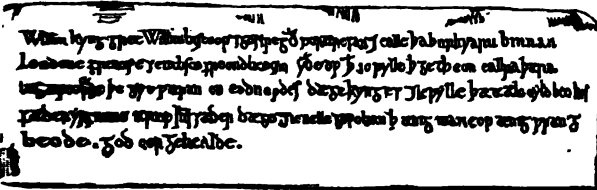 Willm kyng gret Willm bisceop 7 gosfregð portirefan 7 ealle þa burhwaru binnan
Londone frencisce 7 englisce freondlice 7 ic kyðe eow þ ic wylle þ get beon eallra þæra
laga weorðe þe gyt wæran on eadwerdes dæge kynges 7 ic wylle þ ælc cyld beo his
fæder yrfnume æfter his fæder dæge 7 ic nelle geþolian þ ænig man eow ænig wrang
beode. god eow gehealde.